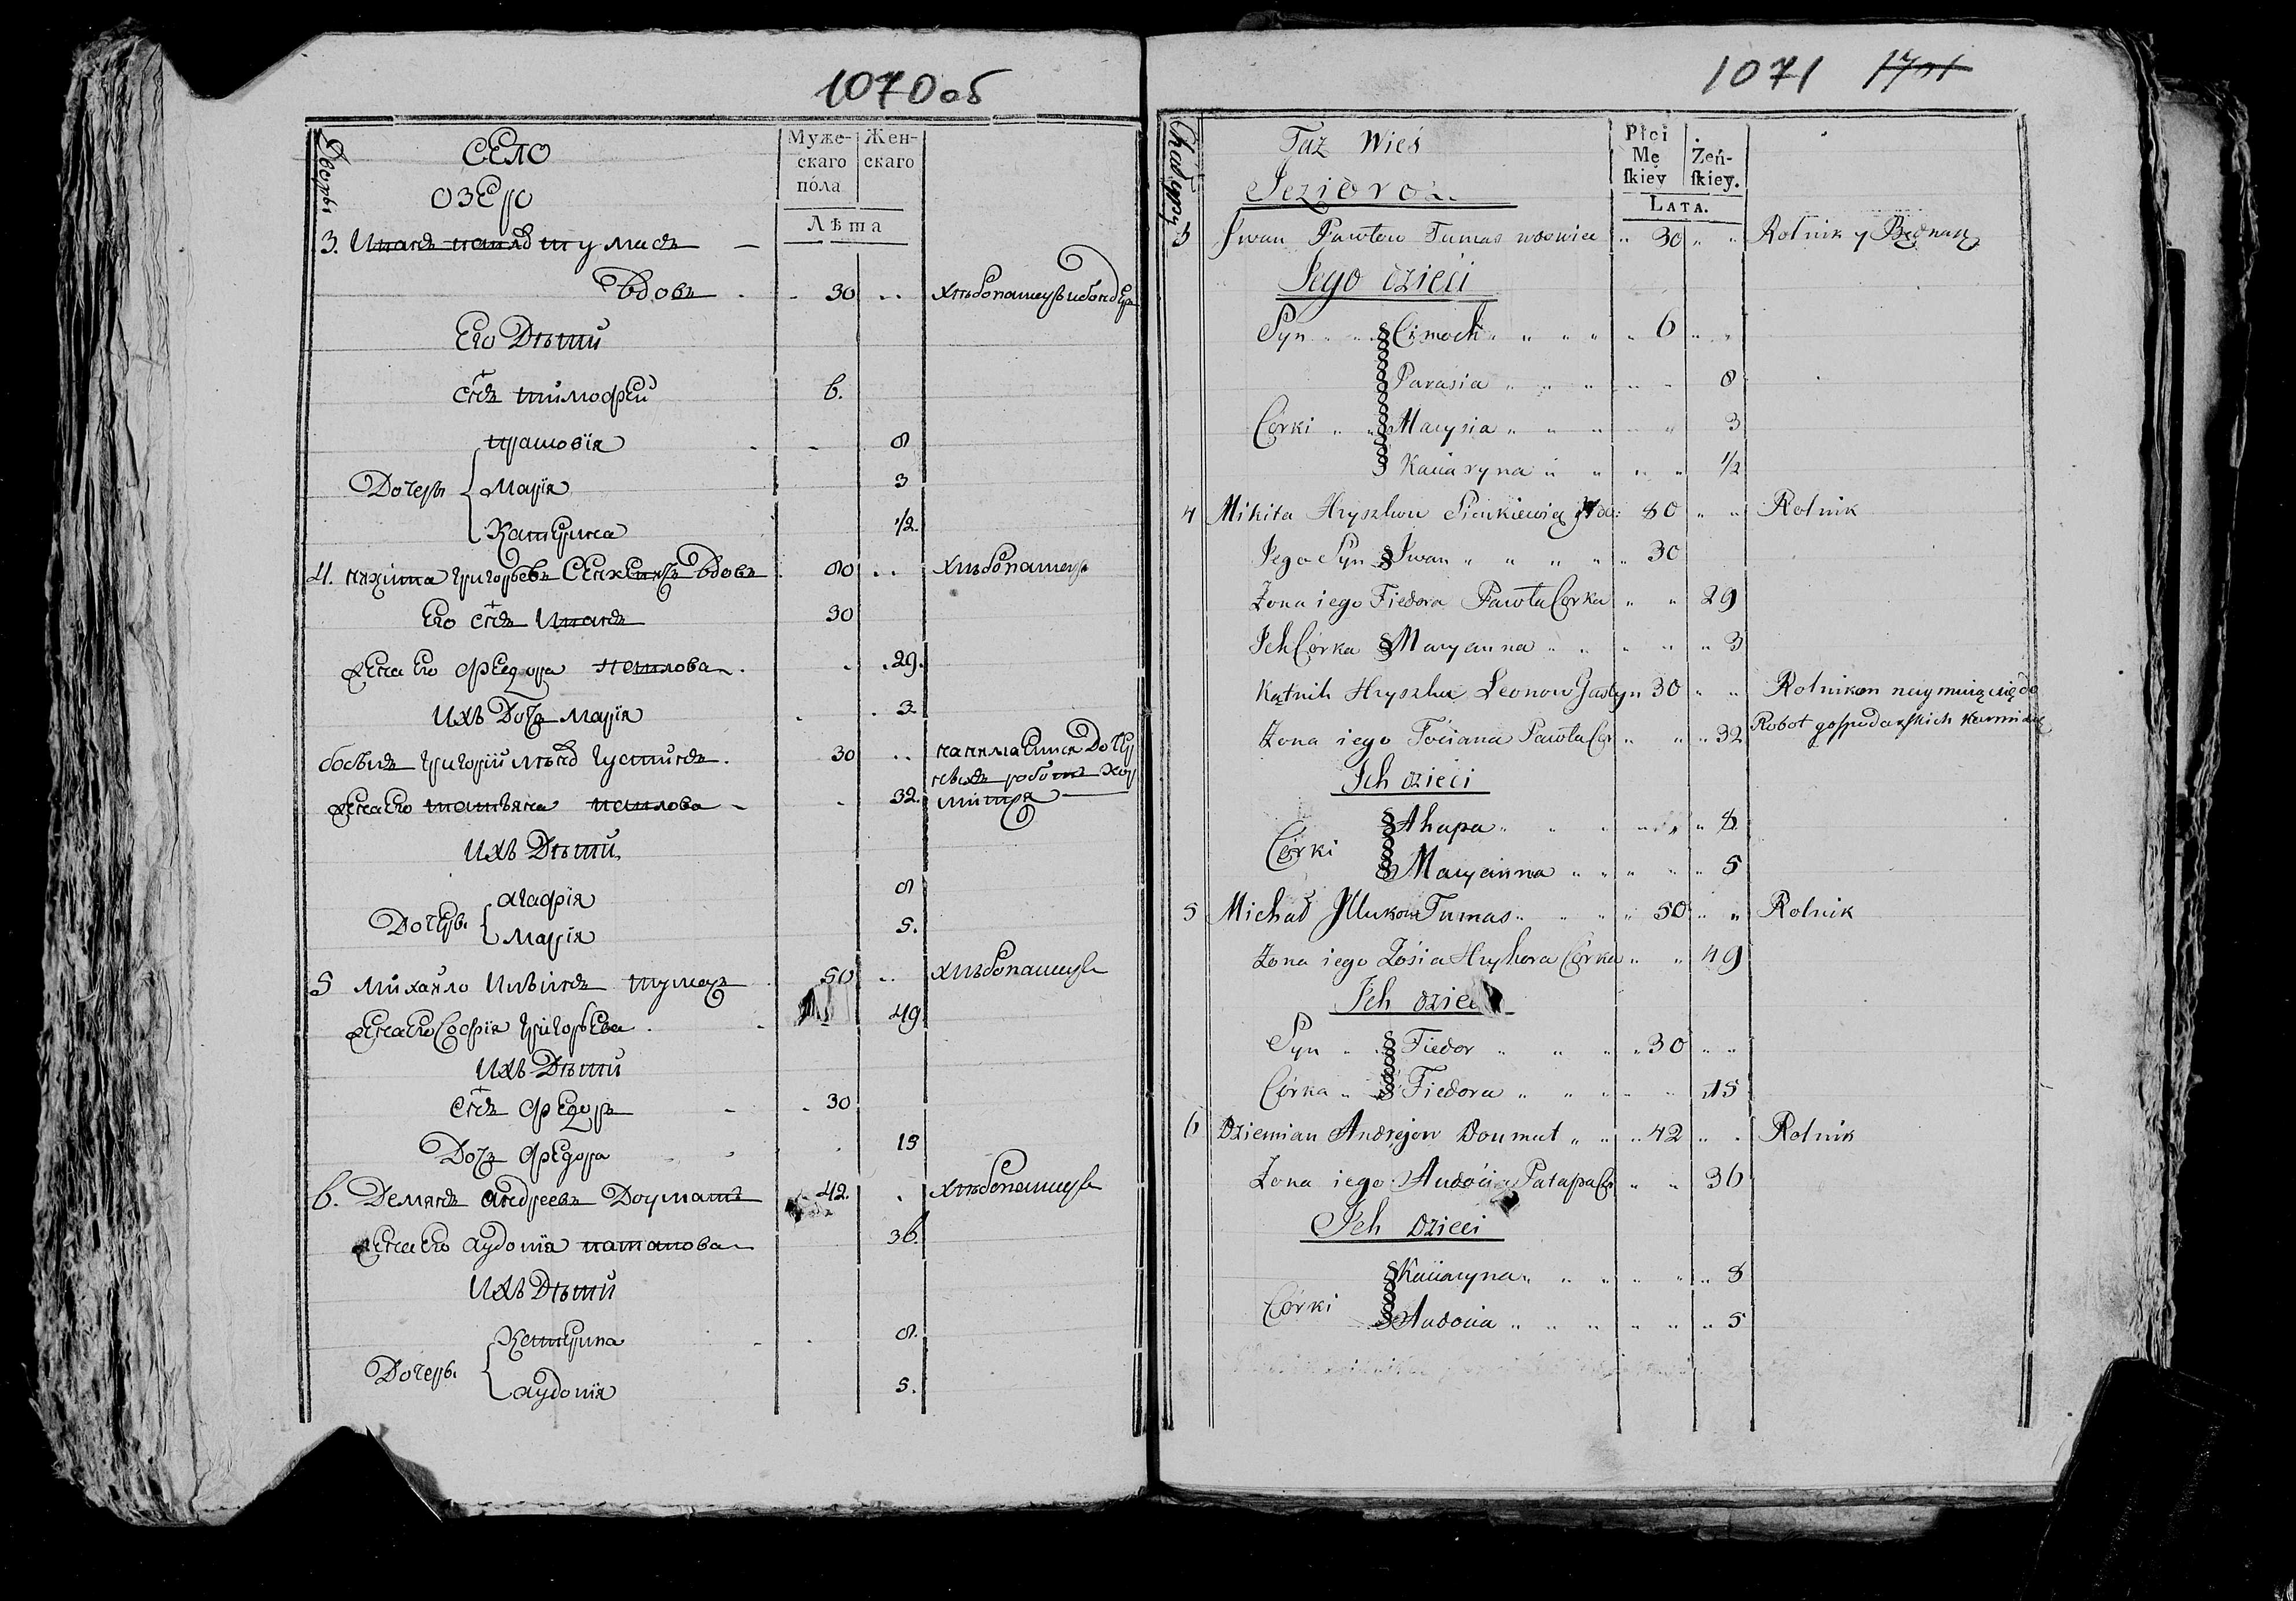 1070об
Дворы
СЕЛО
ОЗЕРО
Муже-
скаго
пóла
Жен-
скаго
Лѣта
3. Иванъ павлов тумасъ
вдовъ 30 хлѣбопашецъ и бондеръ
Его Дѣти
снъ тимофей 6.
Дочери
прасковія 8
Марія 3
Катерина 1/2.
4. никита григорьевъ Сенкевичъ вдовъ 80 хлѣбопашецъ
Его снъ Иванъ 30
жена Его федора павлова 29.
Ихъ Дочь марія 3
григорій 30 нанимаетися
жена Его татьяна павлова 32.
Ихъ Дѣти
Дочери
агафія 8
Марія 5.
5 михайло тумасъ 50 хлѣбопашецъ
жена Его Софія григорьева 49
Ихъ Дѣти
снъ федоръ 30
Дочь федора 15
6. Демянъ андреевъ Доуматъ 42. хлѣбопашецъ
жена Его аудотія патапова 36.
Ихъ Дѣти
Дочери
Катерина 8.
аудотія 5.
1071
Taż Wieś
Jezioro
Płci
Mę
ſkiey
Żeń-
ſkiey.
LATA.
3 Jwan Pawłow Tumas wdowiec 30 Rolnik y Bednarz
Jego dzieci
Syn Cimoch 6
Parasia 8
Córki Marysia 3
Kaciaryna 1/2
4 Mikita Hryszkow Sienkiewicz 80 Rolnik
Jego Syn Jwan 30
Żona iego Fiedora Pawła Corka 29
Jch Córka Maryanna 3
Kątnik Hryszka Leonow 30 Rolnikom naymuią się do
Żona iego Tociana Pawła Cor 32 Robot goſpodarſkich
Jch dzieci
Córki
Ahapa 8
Maryanna 5
5 Michał Tumas 50 Rolnik
Żona iego Zosia Hryhora Córka 49
Jch dzieci
Syn Fiedor 30
Córka Fiedora 15
6 Dziemian Andrejow Doumat 42 Rolnik
Żona iego Audocia Patapa Co 36
Jch Dzieci
Córki
Kaciaryna 8
Audocia 5